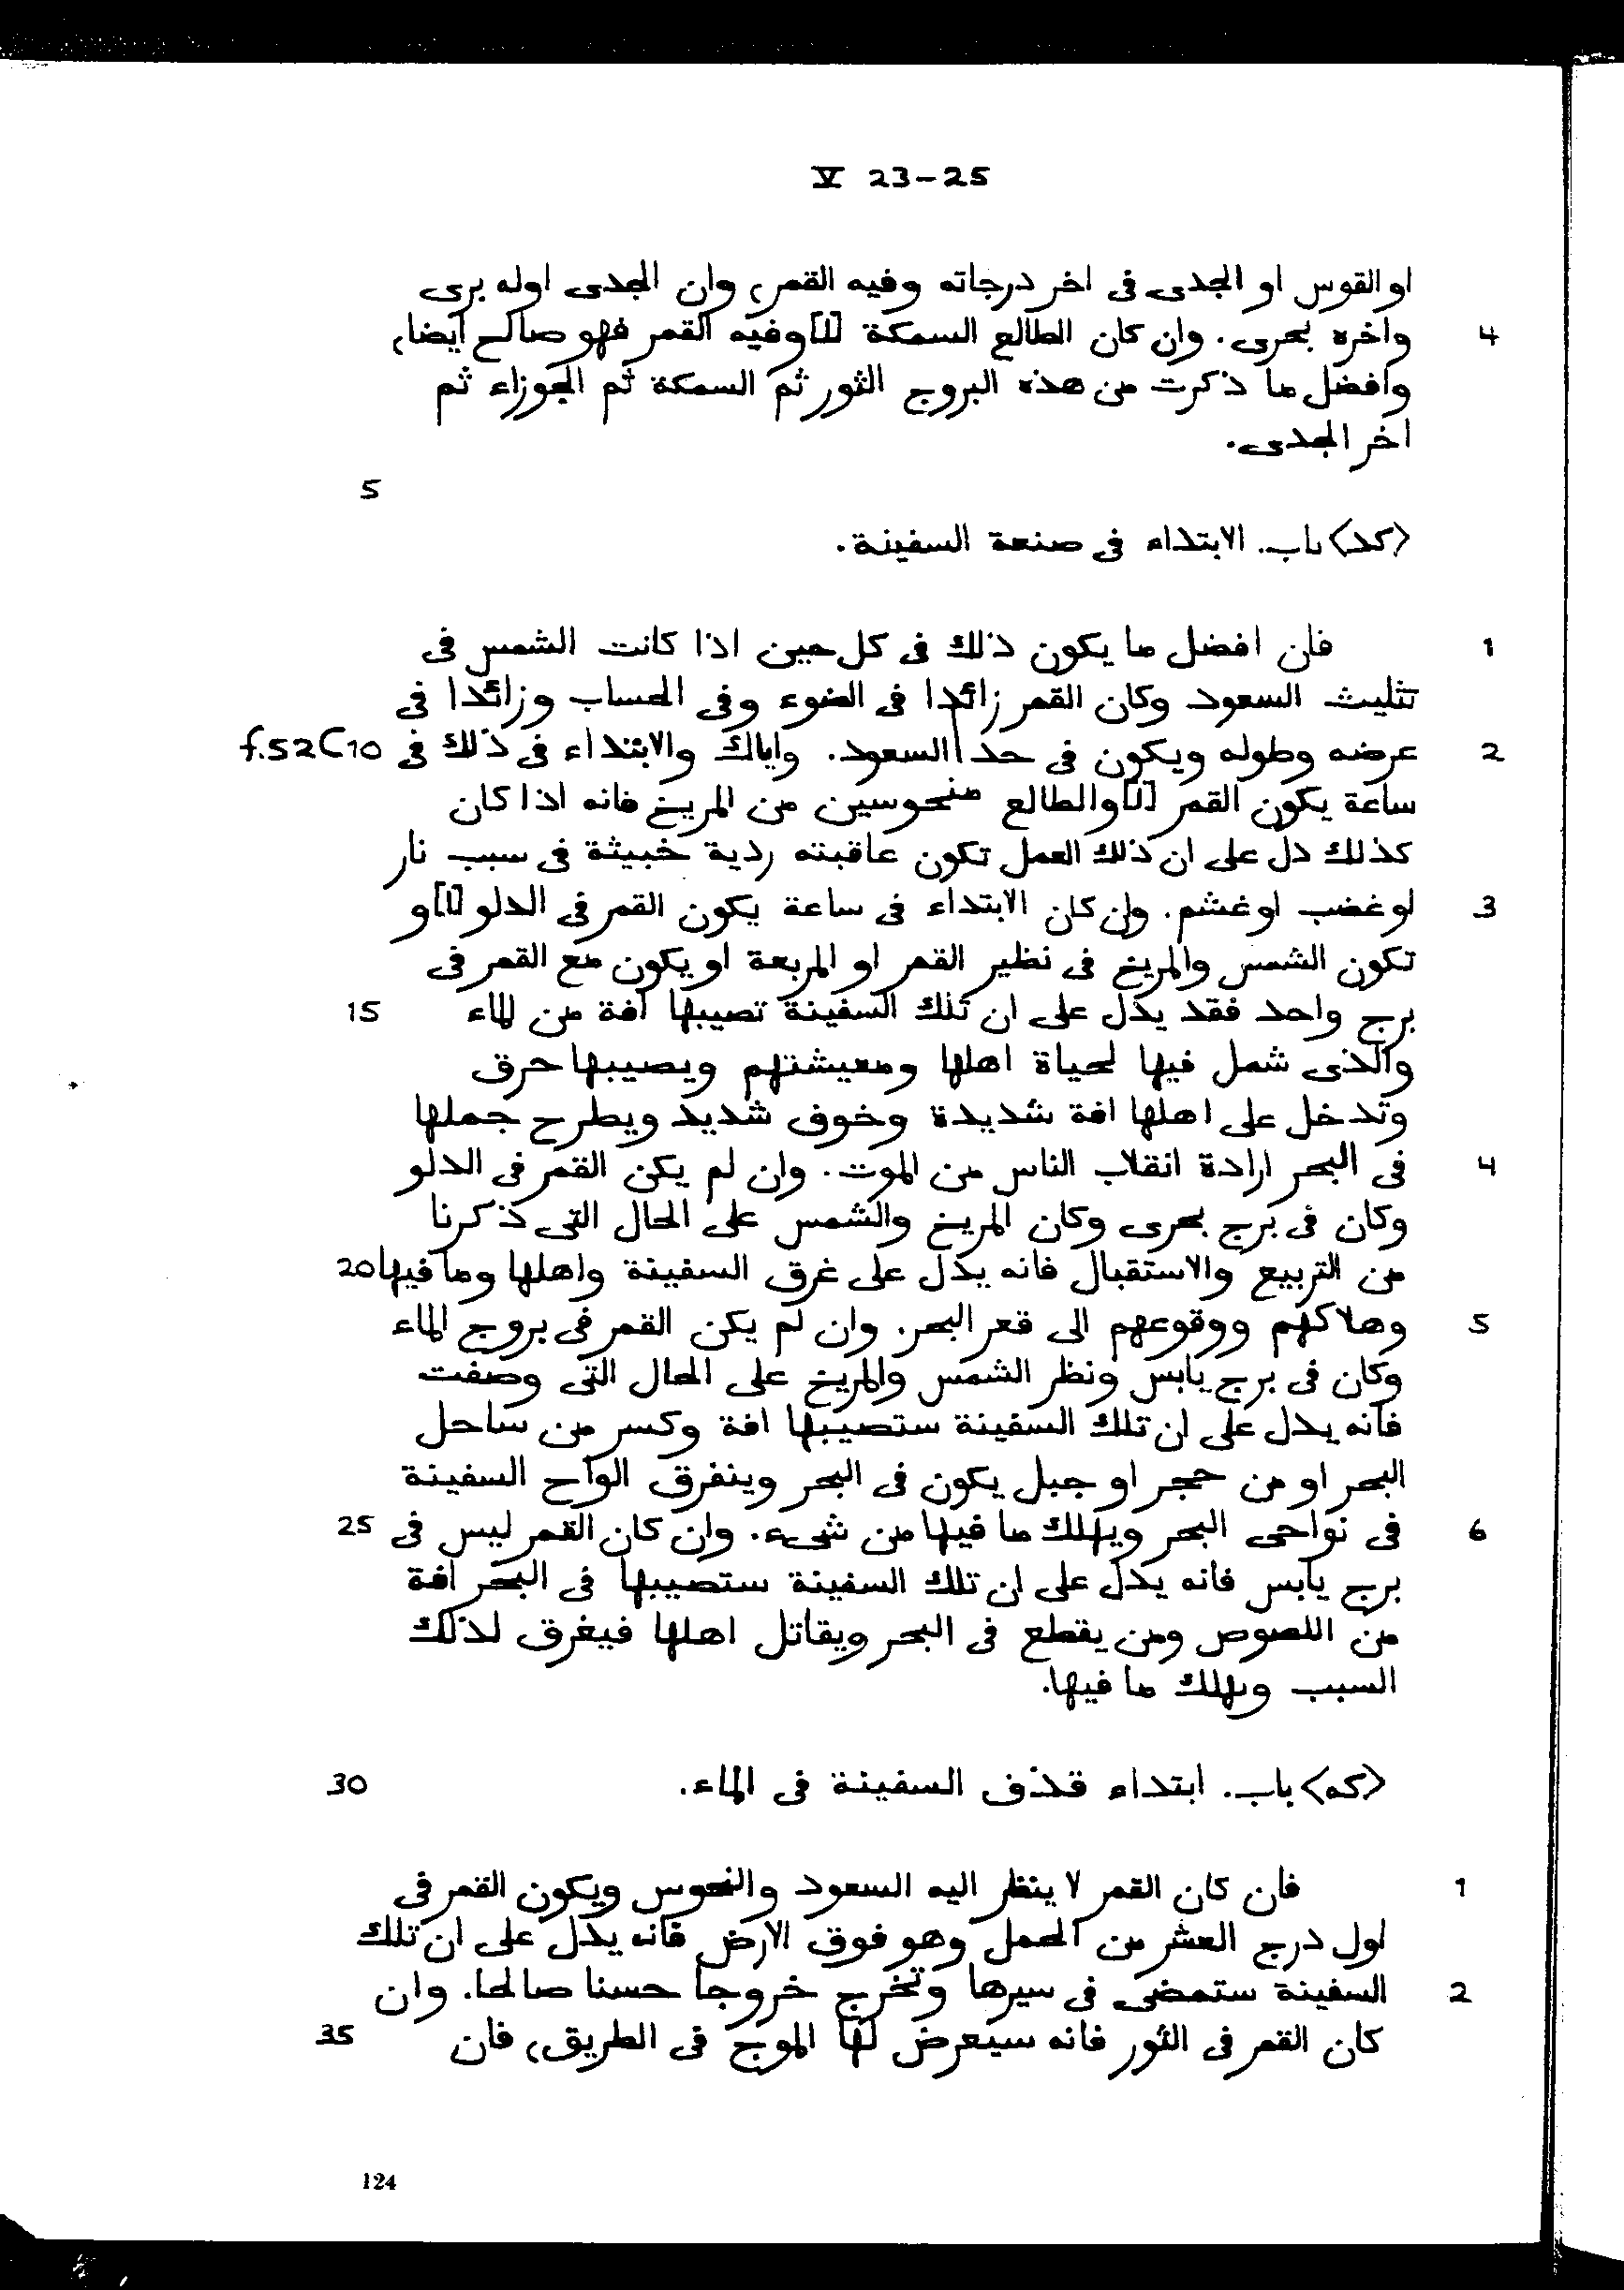 V 23-25
او القوس او الجدى فى اخر درجاته وفيه القمر، وان الجدى اوله برى
4 واخره بحرى. وان كان الطالع السمكة [ا]وفيه القمر فهو صالح ايضا،
وافضل ما ذكرت من هذه البروج الثور ثم السمكة ثم الجوزاء ثم
اخر الجدى.
5
<كد> باب. الابتداء فى صنعة السفينة.
1 فان افضل ما يكون ذلك فى كل حين اذا كانت الشمس فى
تثليث السعود وكان القمر زائدا فى الضوء وفى الحساب وزائدا فى
2 عرضه وطوله ويكون فى حد السعود. واياك والابتداء فى ذلك فى 10 f.52C
ساعة يكون القمر [ا]والطالع منحوسين من المريخ فانه اذا كان
كذلك دل على ان ذلك العمل تكون عاقبته ردية خبيثة فى سبب نار
3 او غضب او غشم. وان كان الابتداء فى ساعة يكون القمر فى الدلو [ا]و
تكون الشمس والمريخ فى نظير القمر او المربعة او يكون مع القمر فى
برج واحد فقد يدل على ان تلك السفينة تصيبها افة من الماء 15
والذى شمل فيها لحياة اهلها ومعيشتهم ويصيبها حرق
وتدخل على اهلها افة شديدة وخوف شديد ويطرح جملها
4 فى البحر ارادة انقلاب الناس من الموت. وان لم يكن القمر فى الدلو
وكان فى برج بحرى وكان المريخ والشمس على الحال التى ذكرنا
من التربيع والاستقبال فانه يدل على غرق السفينة واهلها وما فيها 20
5 وهلاكهم ووقوعهم الى قعر البحر. وان لم يكن القمر فى بروج الماء
وكان فى برج يابس ونظر الشمس والمريخ على الحال التى وصفت
فانه يدل على ان تلك السفينة ستصيبها افة وكسر من ساحل
البحر او من حجر او جبل يكون فى البحر وينفرق الواح السفينة
6 فى نواحى البحر ويهلك ما فيها من شىء. وان كان القمر ليس فى 25
برج يابس فانه يدل على ان تلك السفينة ستصيبها فى البحر افة
من اللصوص ومن يقطع فى البحر ويقاتل اهلها فيغرق لذلك
السبب ويهلك ما فيها.
<كه> باب. ابتداء قذف السفينة فى الماء. 30
1 فان كان القمر لا ينظر اليه السعود والنحوس ويكون القمر فى
اول درج العشر من الحمل وهو فوق الارض فانه يدل على ان تلك
2 السفينة ستمضى فى سيرها وتخرج خروجا حسنا صالحا. وان
كان القمر فى الثور فانه سيعرض لها الموج فى الطريق، فان 35
124